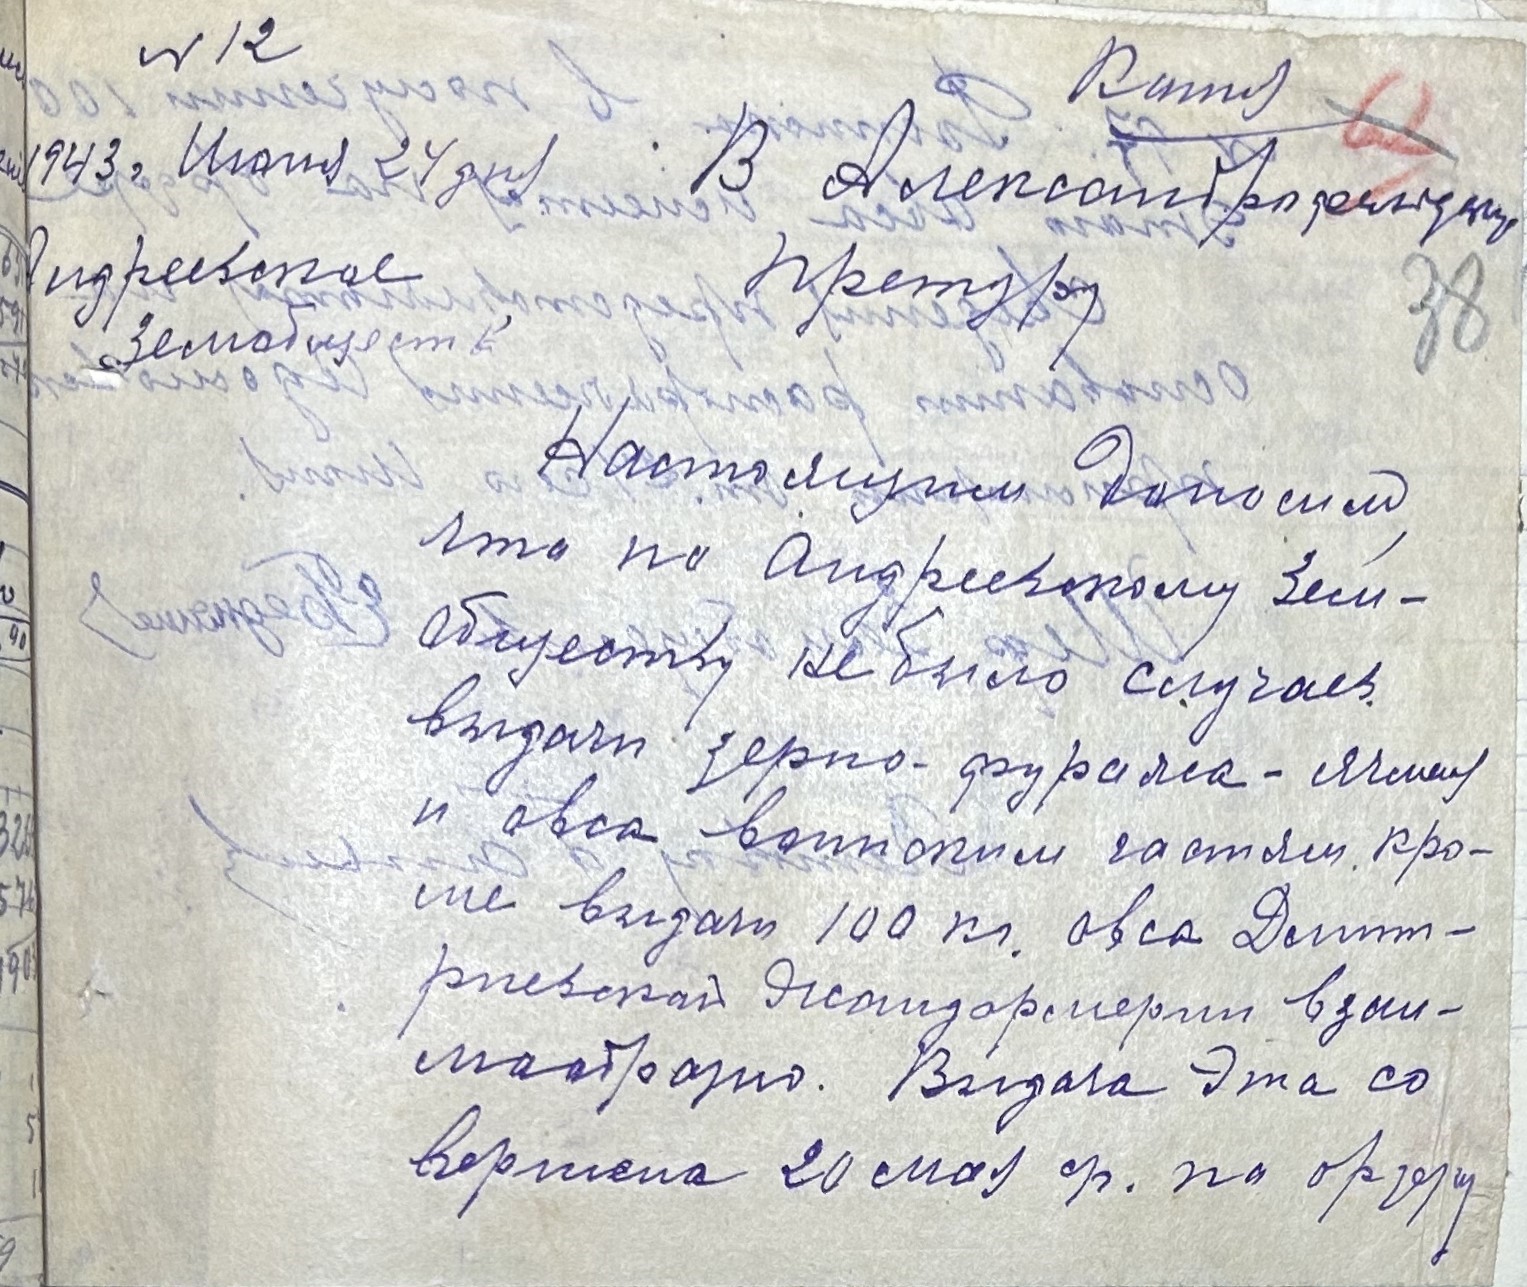 № 12
Копия
1943 г. Июня 24 дня
В Александрфельдскую
Претуру
38
Андреевское
Земобществ
Настоящим доносим,
что по Андреевскому Зем-
обществу не было случаев
выдачи зерно-фуража - ячменя
и овса воинским частям, кро-
ме выдачи 100 кг. овса Дмит-
риевской Жандармерии взаи-
маобразно. Выдача эта со
вершена 20 мая с/г. по ордеру